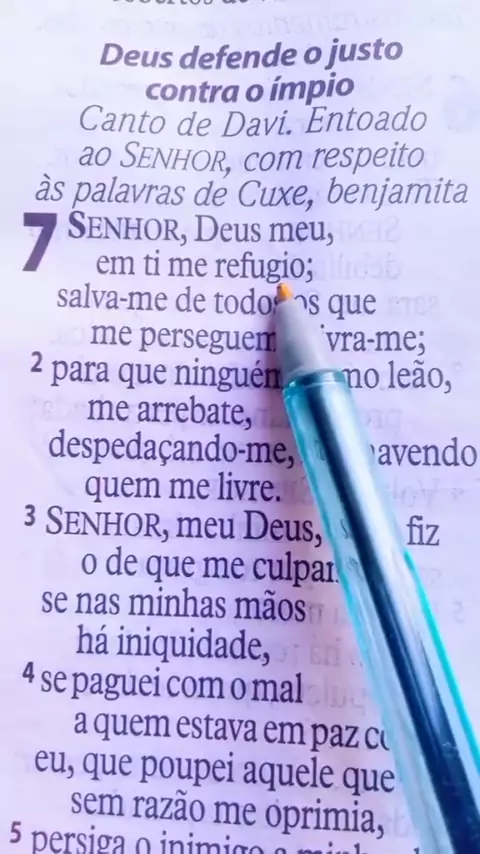 Deus defende o justo
contra o ímpio
Canto de Davi. Entoado
ao SENHOR, com respeito
às palavras de Cuxe, benjamita
7 SENHOR, Deus meu,
em ti me refugio;
salva-me de todos os que
me perseguem vra-me;
2 para que ninguém mo leão,
me arrebate,
despedaçando-me, avendo
quem me livre.
3 SENHOR, meu Deus, fiz
o de que me culpam
se nas minhas mãos
há iniquidade,
4 se paguei com o mal
a quem estava em paz
eu, que poupei aquele que
sem razão me oprimia,
5 persiga o inimigo a